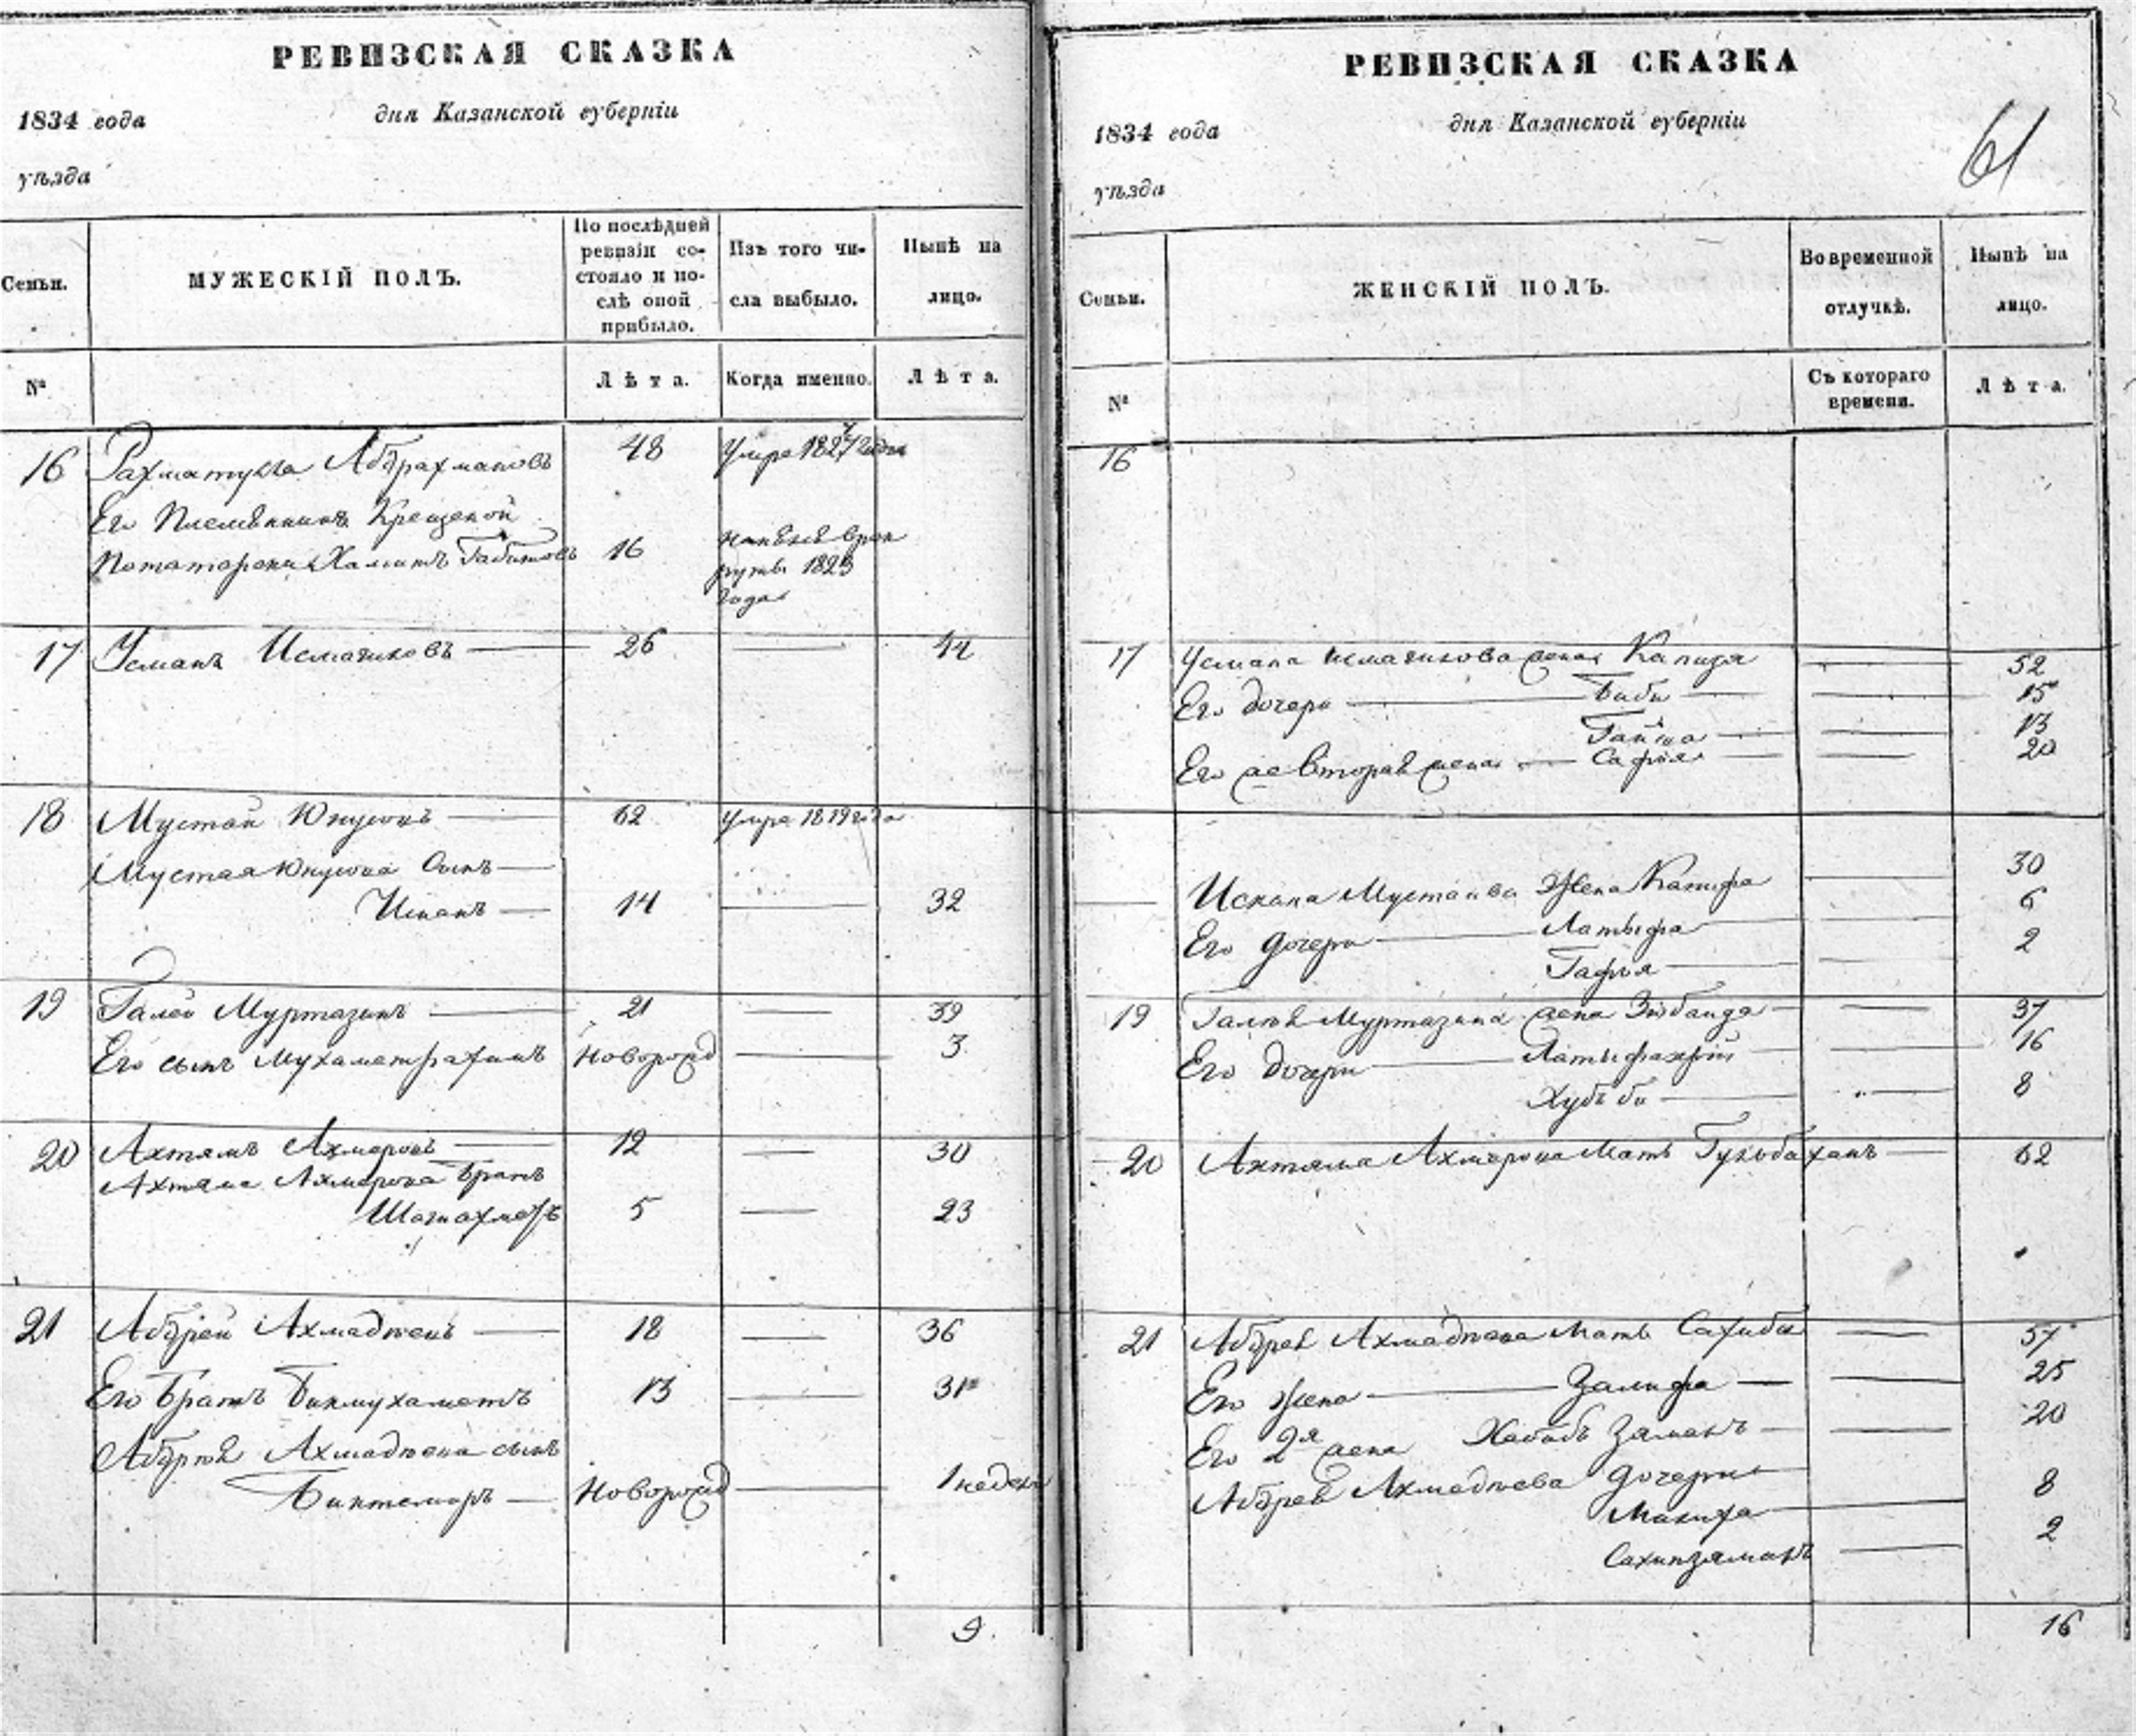 РЕВИЗСКАЯ СКАЗКА
1834 года дня Казанской губерніи
уѣзда
Семьи. МУЖЕСКІЙ ПОЛЪ. По послѣдней ревизіи состояло и послѣ оной прибыло. Изъ того числа выбыло. Нынѣ на лицо.
№ Лѣта. Когда именно. Лѣта.
16 Рахматулла Абдрахмановъ 48 Умре 1827 года
Его Племянникъ Крещеной
Потатарски Хамитъ Габитовъ 16 рекруты 182 года
17 Усманъ Исмагиловъ 26 44
18 Мустай Юнусовъ 62 Умре 1819 года
Мустая Юнусова Сынъ
Исканъ 14 32
19 Галей Муртазинъ 21 39
Его сынъ Мухаметрахимъ Новорожд 3
20 Ахтямъ Ахмеровъ 12 30
Ахтяма Ахмерова Братъ
Шагиахметъ 5 23
21 Абдрей Ахмадѣевъ 18 36
Его Братъ Бикмухаметъ 13 31
Абдрѣя Ахмадѣева сынъ
Биктемиръ Новорожд 1 недели
9
РЕВИЗСКАЯ СКАЗКА
1834 года дня Казанской губерніи
уѣзда
61
Семьи. ЖЕНСКІЙ ПОЛЪ. Во временной отлучкѣ. Нынѣ на лицо.
№ Съ котораго времени. Лѣта.
16
17 Усмана Исмагилова жена 52
Его дочери Биби 15
13
Его же вторая жена Сафія 20
Искана Мустаива Жена 30
Его дочери Латыфа 6
Гафія 2
19 Галѣя Муртазина жена Зюбаида 37
Его дочери 16
Хубъби 8
20 Ахтяма Ахмерова Мать Гульбаханъ 62
21 Абдрея Ахмадѣева Мать Сахиба 57
Его Жена Залифа 25
Его 2я жена Хабибъ Заманъ 20
Абдрея Ахмадѣева Дочери
Малиха 8
Сахипзяманъ 2
16